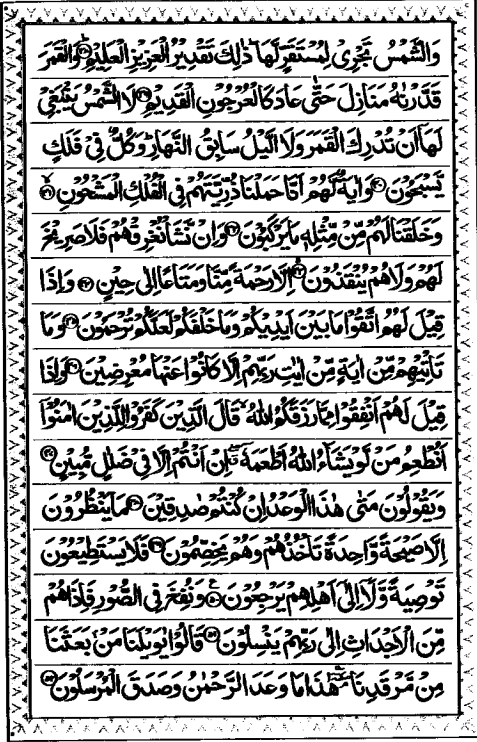 وَالشَّمْسُ تَجْرِىْ لِمُسْتَقَرٍّ لَّهَا ؕ ذٰلِكَ تَقْدِيْرُ الْعَزِيْزِ الْعَلِيْمِ ۳۸ وَالْقَمَرَ
قَدَّرْنٰهُ مَنَازِلَ حَتّٰى عَادَ كَالْعُرْجُوْنِ الْقَدِيْمِ ۳۹ لَا الشَّمْسُ يَنْۢبَغِىْ
لَهَاۤ اَنْ تُدْرِكَ الْقَمَرَ وَلَا الَّيْلُ سَابِقُ النَّهَارِ ؕ وَكُلٌّ فِىْ فَلَكٍ
يَّسْبَحُوْنَ ۴۰ وَاٰيَةٌ لَّهُمْ اَنَّا حَمَلْنَا ذُرِّيَّتَهُمْ فِى الْفُلْكِ الْمَشْحُوْنِ ۴۱
وَخَلَقْنَا لَهُمْ مِّنْ مِّثْلِهٖ مَا يَرْكَبُوْنَ ۴۲ وَاِنْ نَّشَاْ نُغْرِقْهُمْ فَلَا صَرِيْخَ
لَهُمْ وَلَا هُمْ يُنْقَذُوْنَ ۴۳ اِلَّا رَحْمَةً مِّنَّا وَمَتَاعًا اِلٰى حِيْنٍ ۴۴ وَاِذَا
قِيْلَ لَهُمُ اتَّقُوْا مَا بَيْنَ اَيْدِيْكُمْ وَمَا خَلْفَكُمْ لَعَلَّكُمْ تُرْحَمُوْنَ ۴۵ وَمَا
تَاْتِيْهِمْ مِّنْ اٰيَةٍ مِّنْ اٰيٰتِ رَبِّهِمْ اِلَّا كَانُوْا عَنْهَا مُعْرِضِيْنَ ۴۶ وَاِذَا
قِيْلَ لَهُمْ اَنْفِقُوْا مِمَّا رَزَقَكُمُ اللّٰهُ ۙ قَالَ الَّذِيْنَ كَفَرُوْا لِلَّذِيْنَ اٰمَنُوْۤا
اَنُطْعِمُ مَنْ لَّوْ يَشَآءُ اللّٰهُ اَطْعَمَهٗۤ ۖ اِنْ اَنْتُمْ اِلَّا فِىْ ضَلٰلٍ مُّبِيْنٍ ۴۷
وَيَقُوْلُوْنَ مَتٰى هٰذَا الْوَعْدُ اِنْ كُنْتُمْ صٰدِقِيْنَ ۴۸ مَا يَنْظُرُوْنَ
اِلَّا صَيْحَةً وَّاحِدَةً تَاْخُذُهُمْ وَهُمْ يَخِصِّمُوْنَ ۴۹ فَلَا يَسْتَطِيْعُوْنَ
تَوْصِيَةً وَّلَاۤ اِلٰٓى اَهْلِهِمْ يَرْجِعُوْنَ ۵۰ وَنُفِخَ فِى الصُّوْرِ فَاِذَا هُمْ
مِّنَ الْاَجْدَاثِ اِلٰى رَبِّهِمْ يَنْسِلُوْنَ ۵۱ قَالُوْا يٰوَيْلَنَا مَنْۢ بَعَثَنَا
مِنْ مَّرْقَدِنَا ۘ هٰذَا مَا وَعَدَ الرَّحْمٰنُ وَصَدَقَ الْمُرْسَلُوْنَ ۵۲